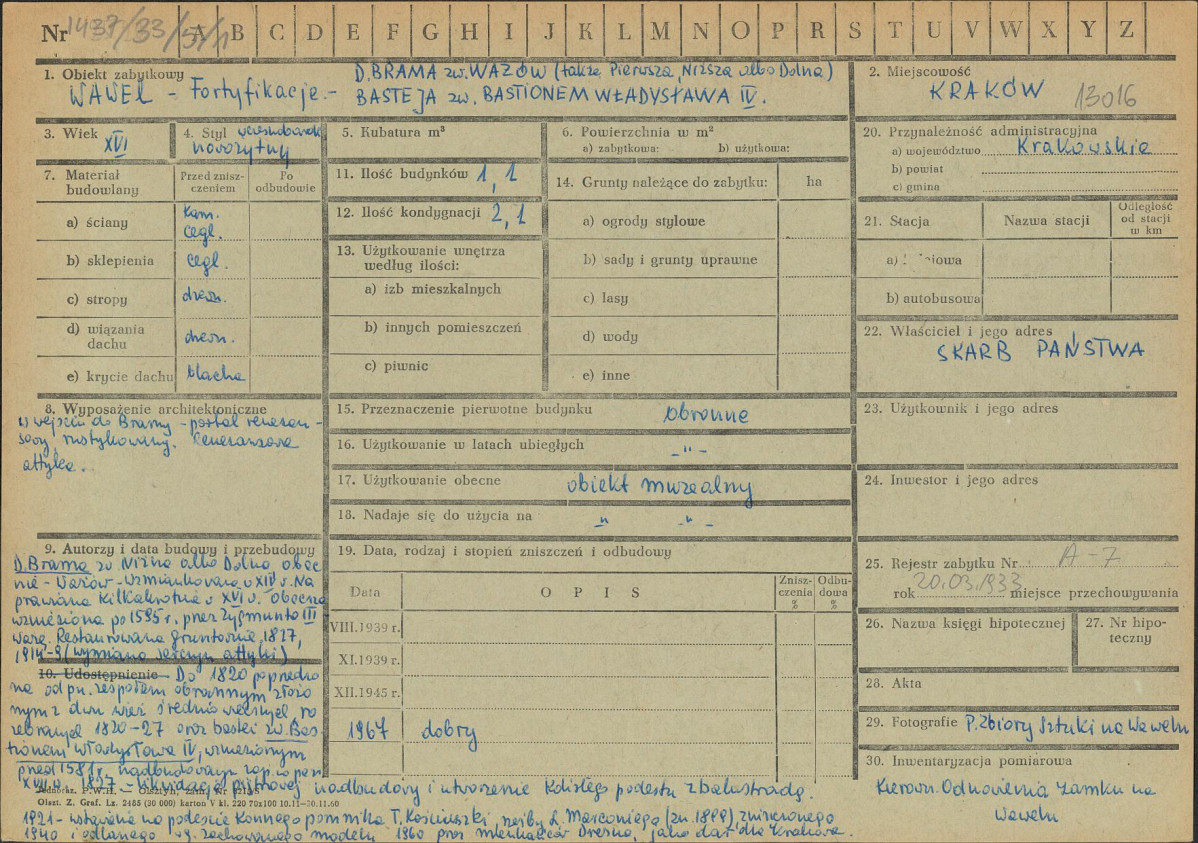 Nr 1437/33/5/1 A B C D E F G H I J K L M N O P R S T U V W X Y Z
1. Obiekt zabytkowy
WAWEL - Fortyfikacje.-
D. BRAMA zw. WAZÓW (także Pierwsza, Niższa albo Dolna)
BASTEJA zw. BASTIONEM WŁADYSŁAWA IV.
2. Miejscowość
KRAKÓW 13016
3. Wiek
XVI
4. Styl
nowożytny
5. Kubatura m³
6. Powierzchnia w m²
a) zabytkowa: b) użytkowa:
20. Przynależność administracyjna
a) województwo Krakowskie
b) powiat
c) gmina
7. Materiał
budowlany
Przed znisz-
czeniem
Po
odbudowie
a) ściany
Kam.
Cegl.
b) sklepienia cegl.
c) stropy drewn.
d) wiązania
dachu
drewn.
e) krycie dachu blacha
11. Ilość budynków 1, 1
12. Ilość kondygnacji 2, 1
13. Użytkowanie wnętrza
według ilości:
a) izb mieszkalnych
b) innych pomieszczeń
c) piwnic
14. Grunty należące do zabytku: ha
a) ogrody stylowe
b) sady i grunty uprawne
c) lasy
d) wody
e) inne
21. Stacja Nazwa stacji
Odległość
od stacji
w km
a)
b) autobusowa
22. Właściciel i jego adres
SKARB PAŃSTWA
8. Wyposażenie architektoniczne
w wejściu do Bramy - portal renesan-
sowy, rustykowany. Renesansowa
attyka.
15. Przeznaczenie pierwotne budynku obronne
16. Użytkowanie w latach ubiegłych - " -
17. Użytkowanie obecne obiekt muzealny
18. Nadaje się do użycia na " - " -
23. Użytkownik i jego adres
24. Inwestor i jego adres
9. Autorzy i data budowy i przebudowy
D. Brama zw. Niżna albo Dolna obec
nie - Wazów - wzmiankowana w XIV w. Na
prawiana kilkakrotnie w XVI w. obecna
wzniesiona po 1595 r. przez Zygmunta III
Wazę. Restaurowana gruntownie 1827,
(wymiana attyki)
10. Udostępnienie - Do 1820 poprzedzo
na od pn. zespołem obronnym złożo
nym z dwu wież średniowiecznych ro
zebranych 1820-27 oraz bastei zw. Bas-
tionem Władysława IV, wzniesionym
przed 1581 r., nadbudowanym
XVII w. 1827 - likwidacja piętrowej nadbudowy i utworzenie kolistego podestu z balustradą.
1921 - ustawienie na podeście Konnego pomnika T. Kościuszki, rzeźby L. Marconiego (zn. 1899) zniszczonego
1940 i odlanego wg. zachowanego modelu 1960 przez mieszkańców Drezna, jako dar dla Krakowa.
19. Data, rodzaj i stopień zniszczeń i odbudowy
Data O P I S
Znisz-
czenia
%
Odbu-
dowa
%
VIII.1939 r.
XI.1939 r.
XII.1945 r.
1967 dobry
25. Rejestr zabytku Nr A-7
rok 20.03.1933 miejsce przechowywania
26. Nazwa księgi hipotecznej
27. Nr hipo-
teczny
28. Akta
29. Fotografie P. Zbiory Sztuki na Wawelu
30. Inwentaryzacja pomiarowa
Kierown. Odnowienia Zamku na
Wawelu
Olszt. Z. Graf. Lz. 2485 (30 000) karton V kl. 220 70x100 10.11—30.11.60